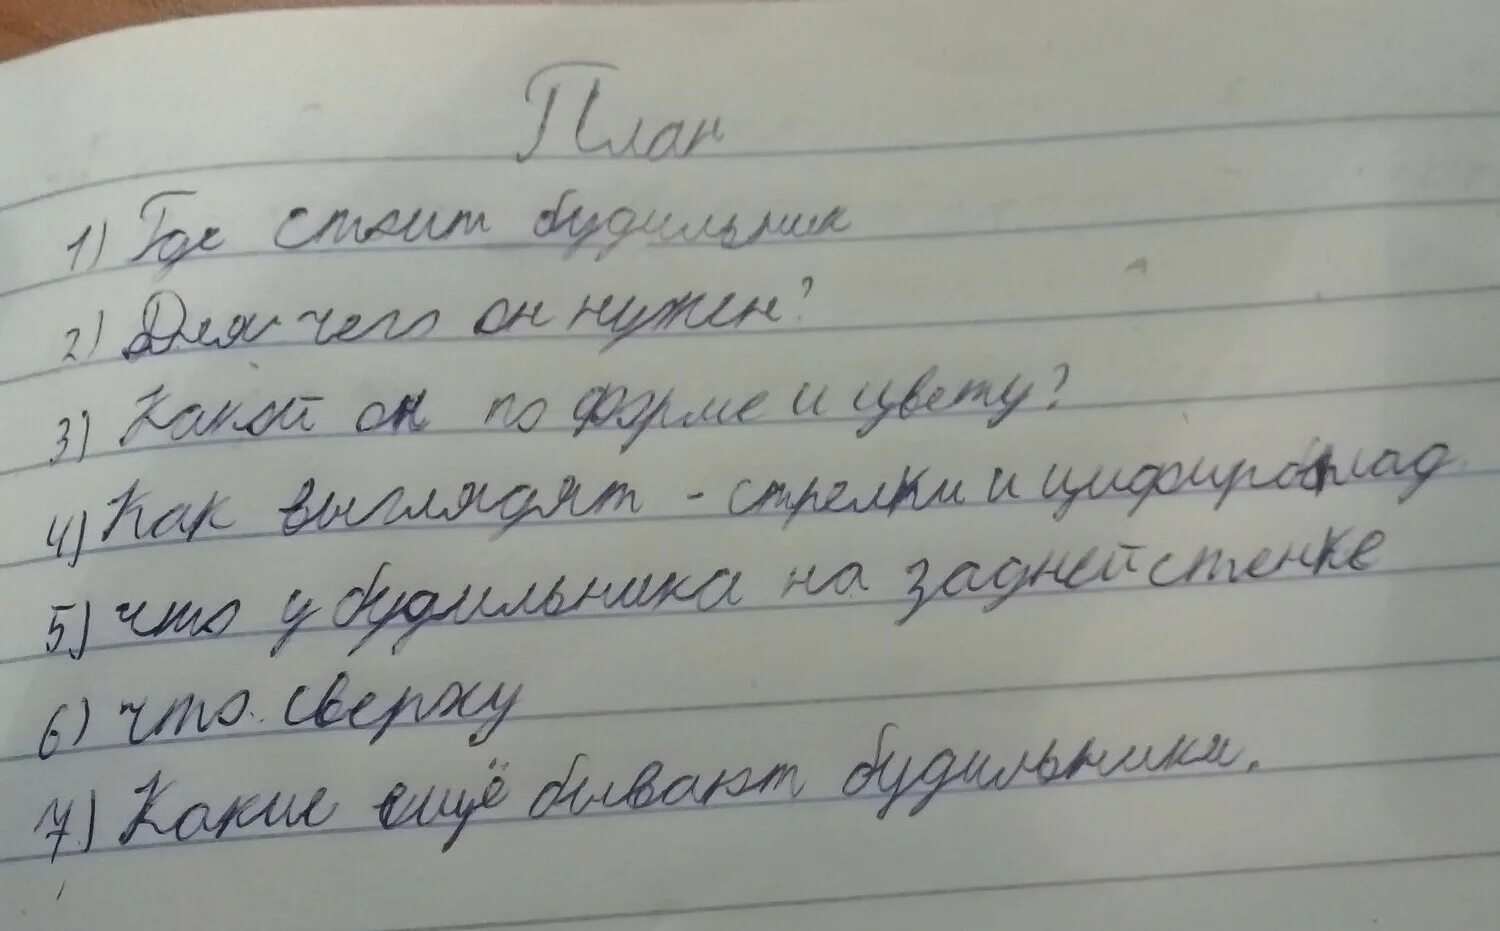 План
1) Где стоит будильник
2) Для чего он нужен?
3) Какой он по форме и цвету?
4) Как выглядят - стрелки и цифироблад
5) что у будильника на задней стенке
6) что сверху
7) Какие ещё бывают будильники.